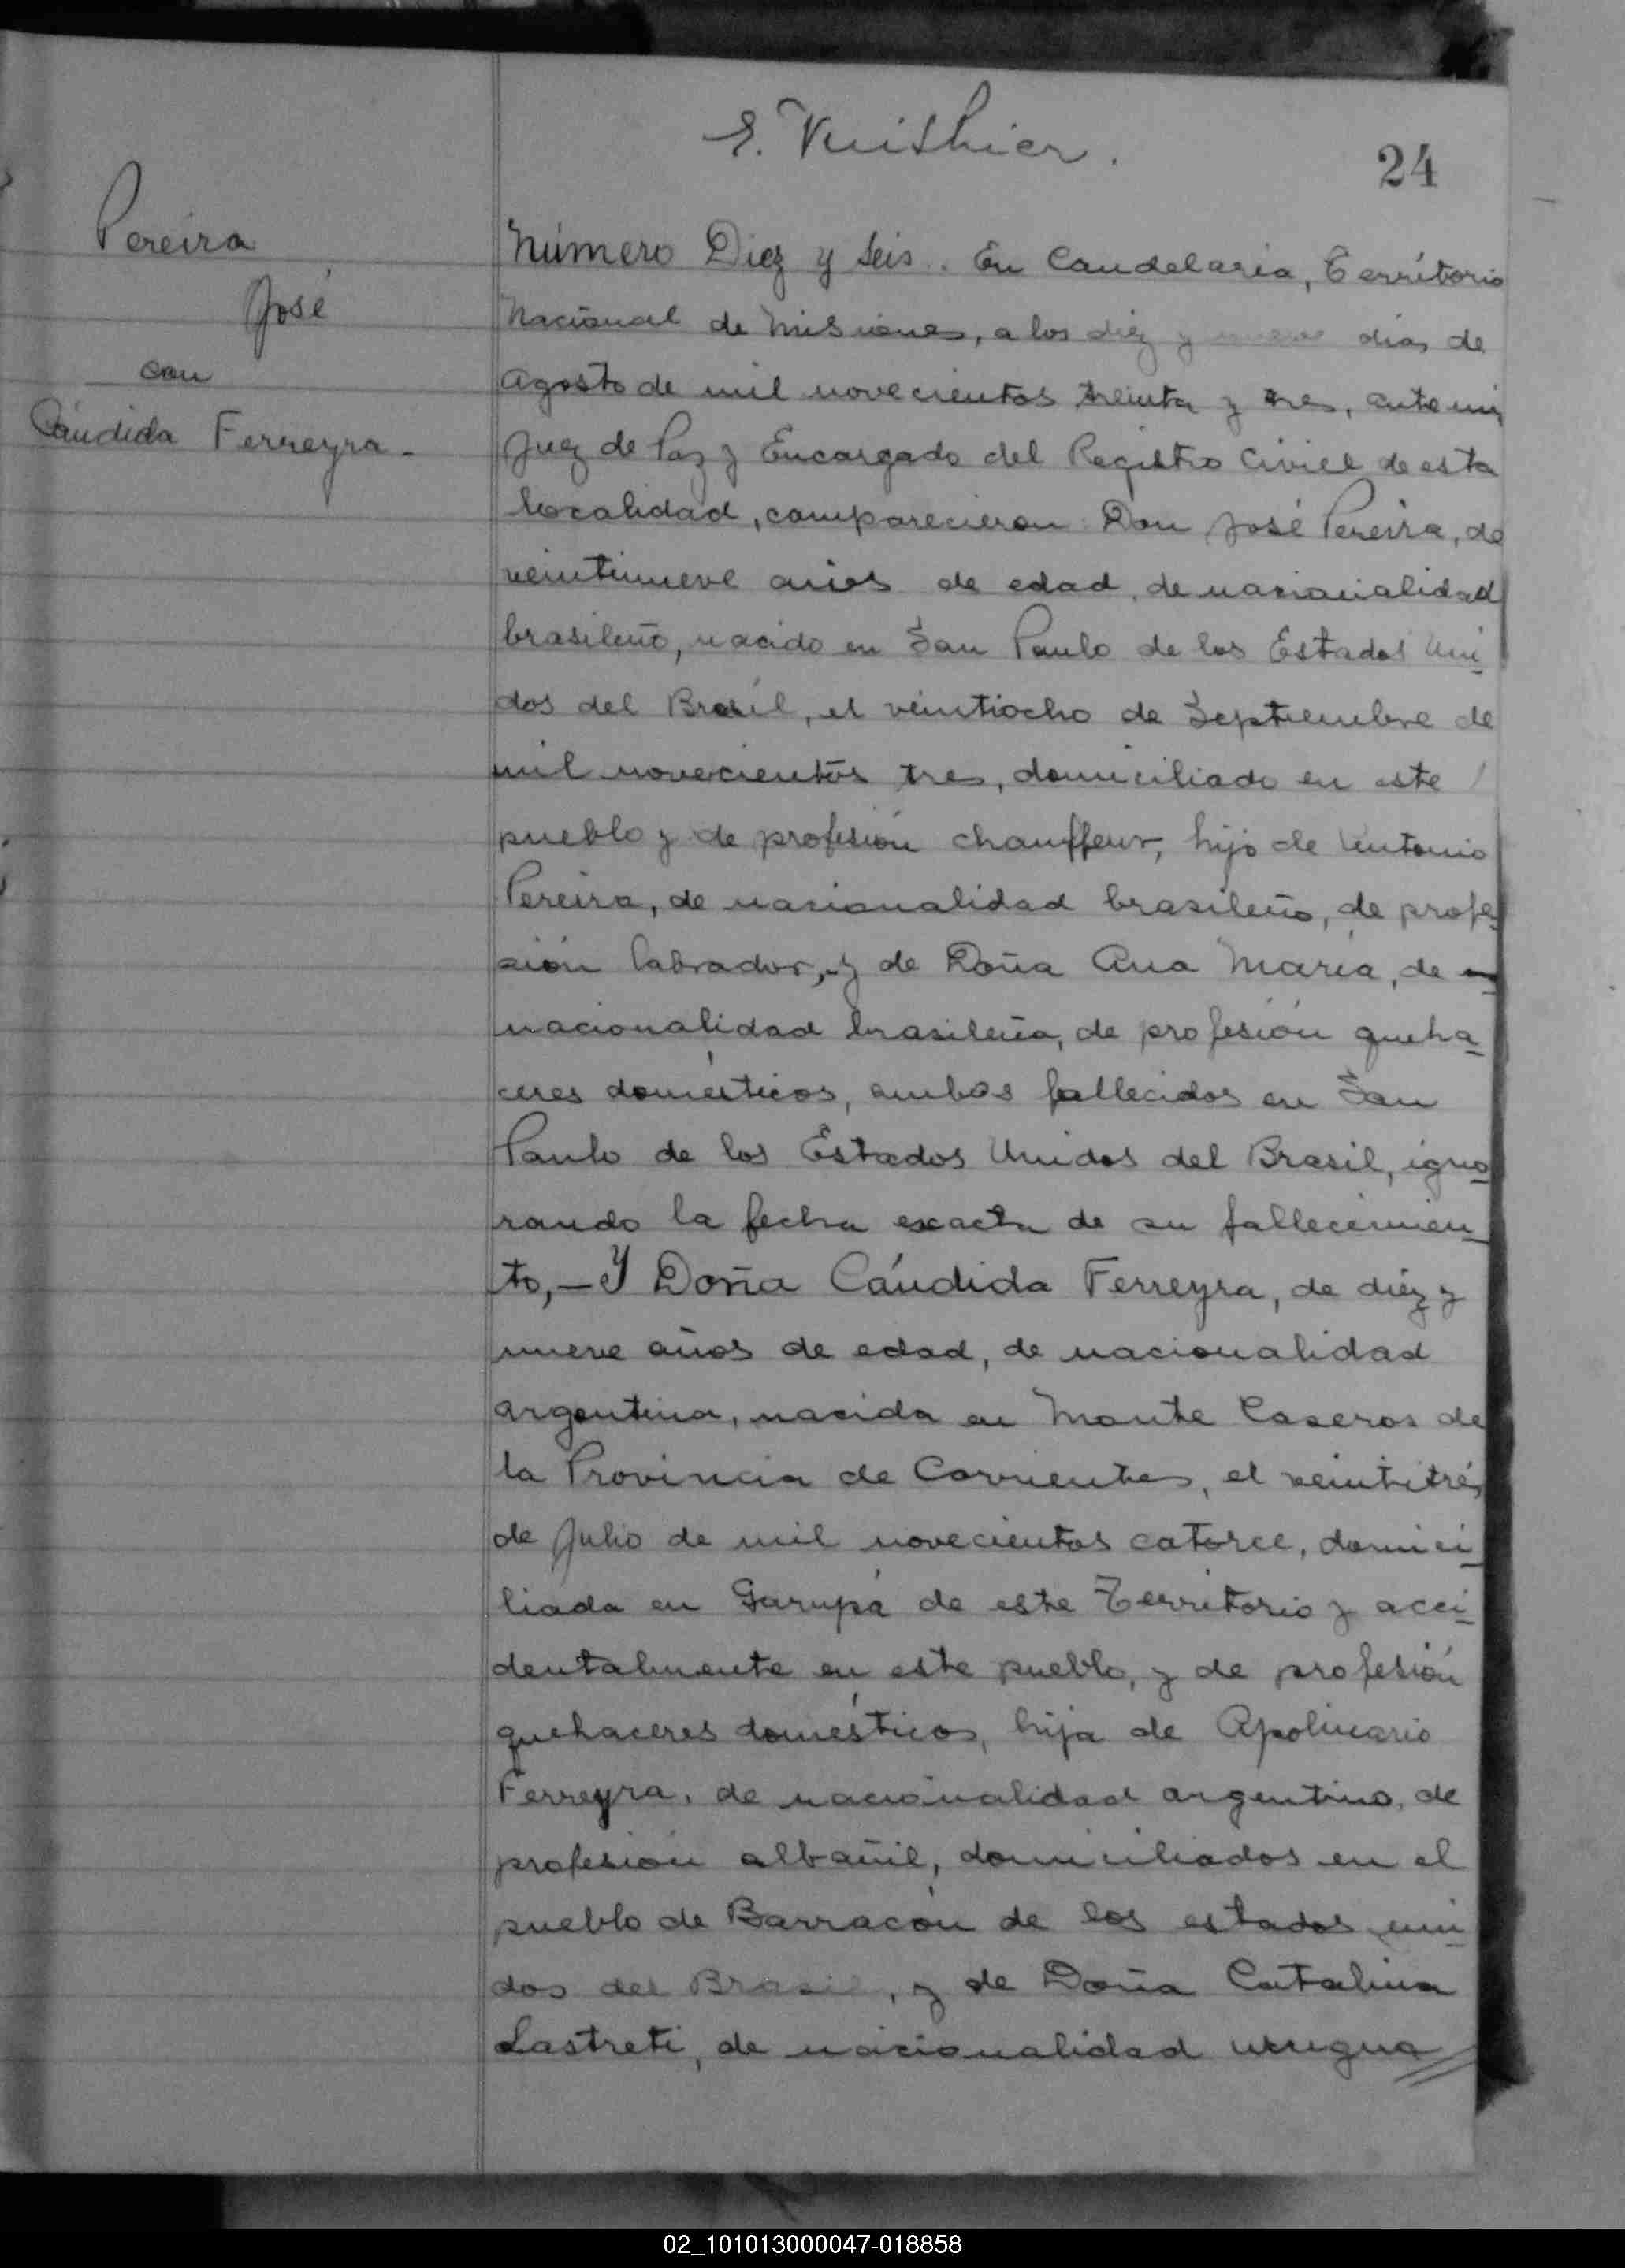 E. Vuithier.
24
Pereira
José
con
Cándida Ferreyra.-
Número Diez y Seis. En Candelaria, Território
Nacional de Misiones, a los diez y nueve dias de
Agosto de mil novecientos treinta y tres, ante mi,
Juez de Paz y Encargado del Registro Civil de esta
localidad, comparecieron: Don José Pereira, de
veintinueve años de edad, de nacionalidad
brasileño, nacido en San Paulo de los Estados Uni-
dos del Brasil, el veintiocho de Septiembre de
mil novecientos tres, domiciliado en este
pueblo y de profesión chauffeur, hijo de Antonio
Pereira, de nacionalidad brasileño, de profe-
sión labrador, y de Doña Ana María, de
nacionalidad brasileña, de profesión queha-
ceres domésticos, ambos fallecidos en San
Paulo de los Estados Unidos del Brasil, igno-
rando la fecha exacta de su fallecimien-
to,- Y Doña Cándida Ferreyra, de diéz y
nueve años de edad, de nacionalidad
argentina, nacida en Monte Caseros de
la Provincia de Corrientes, el veintitrés
de Julio de mil novecientos catorce, domici-
liada en Garupá de este Território y acci-
dentalmente en este pueblo, y de profesión
quehaceres domésticos, hija de Apolinario
Ferreyra, de nacionalidad argentino, de
profesión albañil, domiciliados en el
pueblo de Barracón de los estados uni-
dos del Brasil, y de Doña Catalina
Lastreti, de nacionalidad urugua
02_101013000047-018858